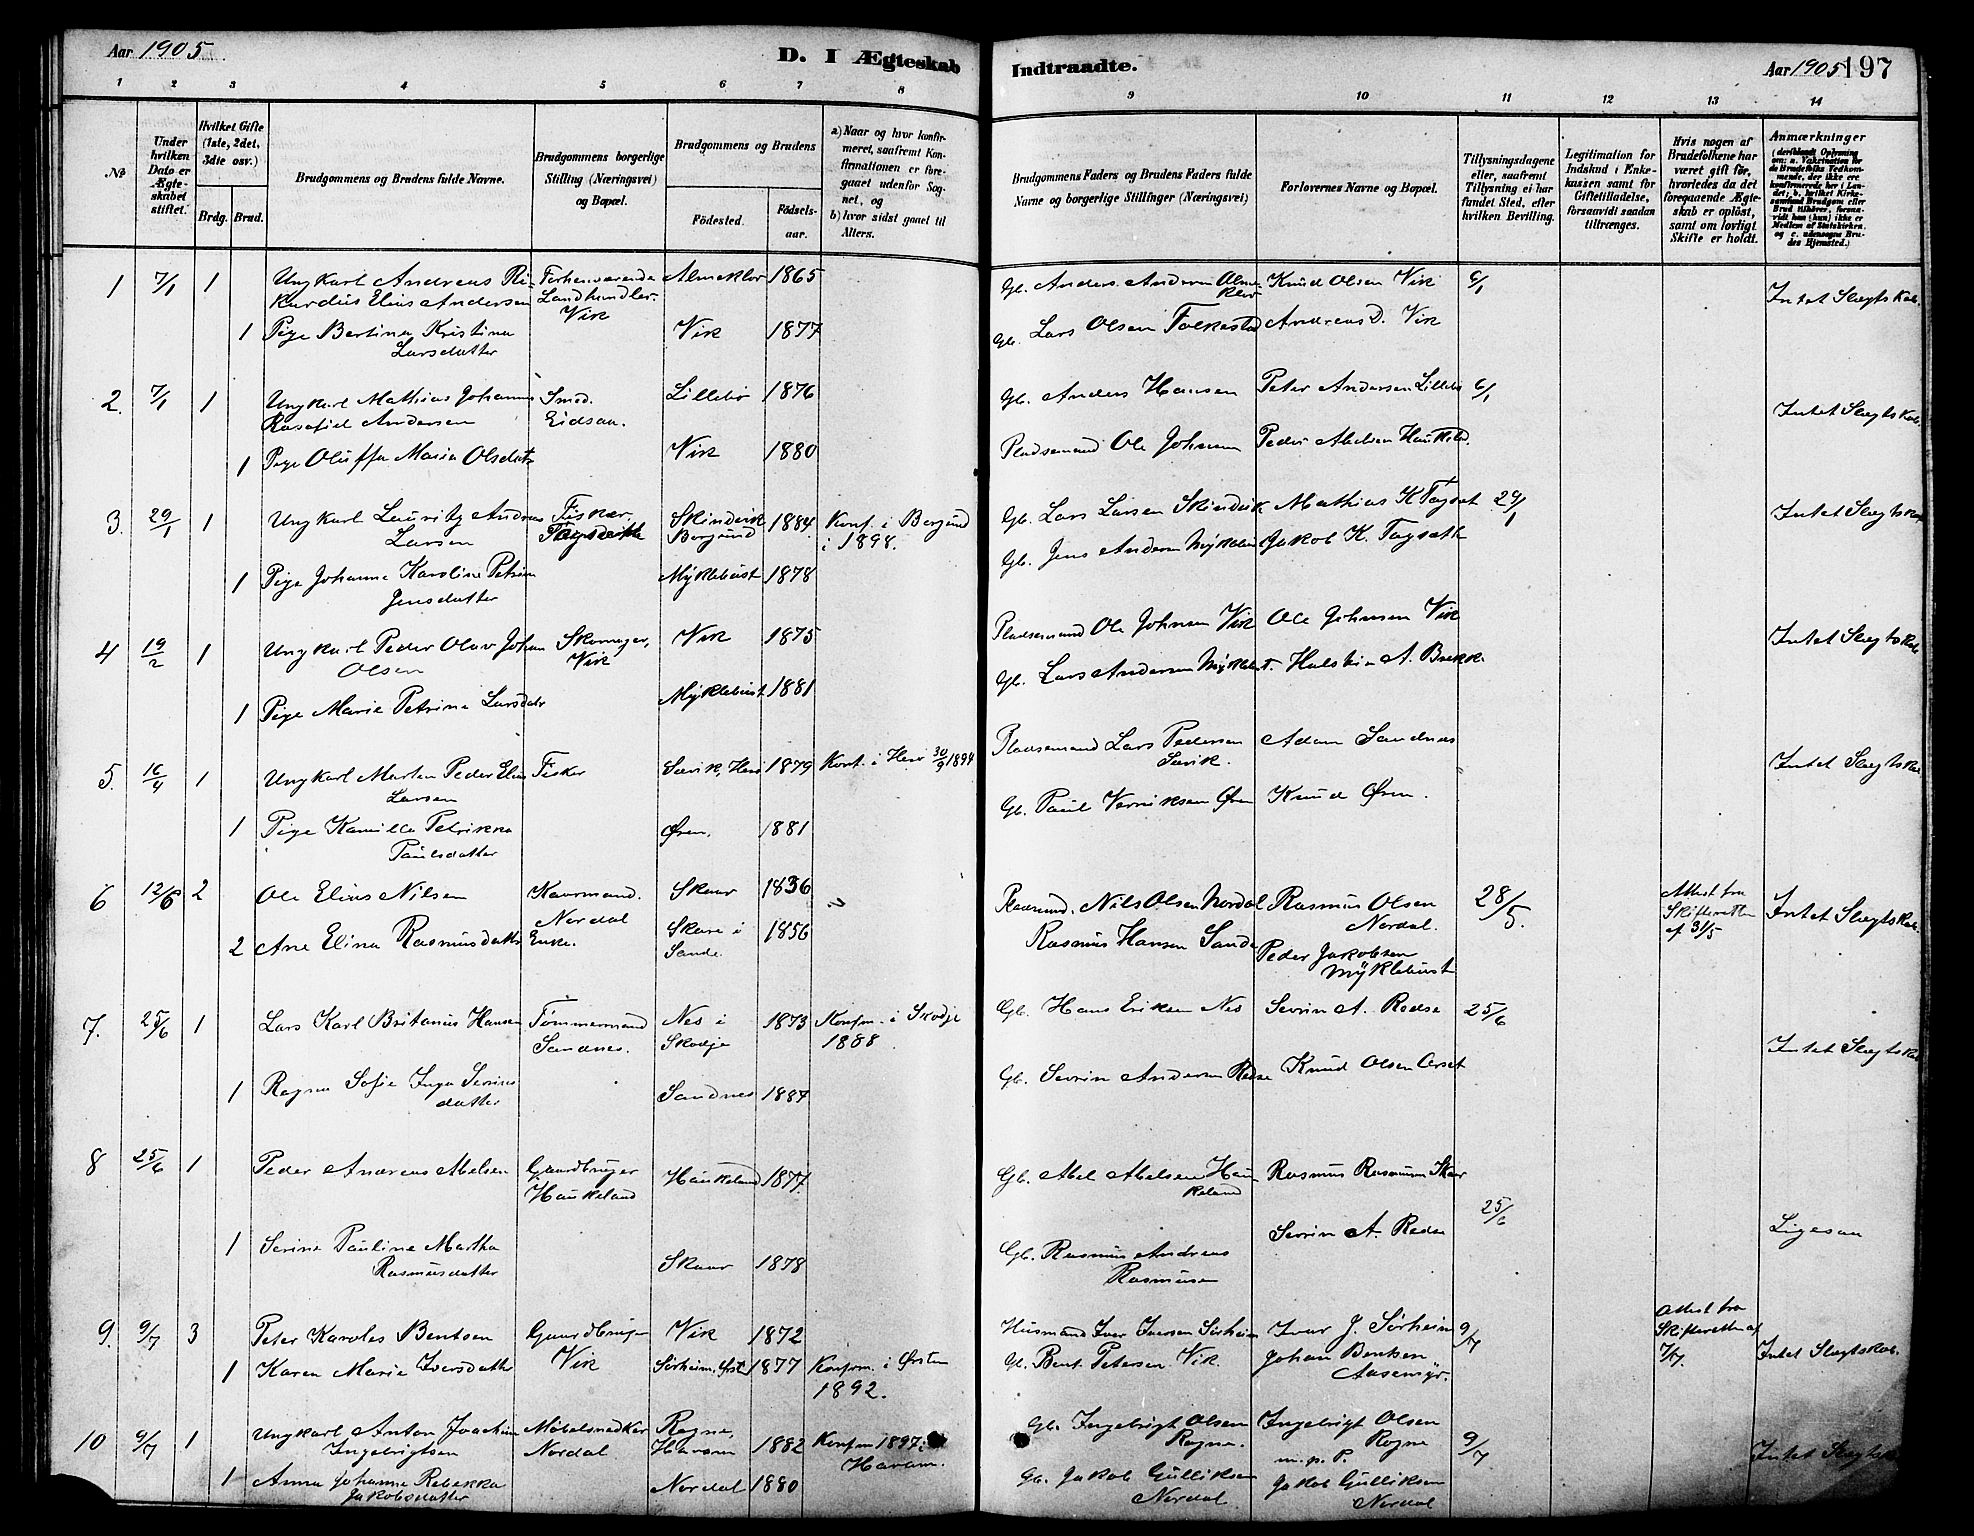 Aar 1905
D. I Ægteskab
Indtraadte.
Aar 1905 197
1 2 3 4 5 6 7 8 9 10 11 12 13 14
No
Under hvilken Dato er Ægteskabet stiftet.
Hvilket Gifte (1ste, 2det, 3die osv.)
Brdg. Brud.
Brudgommens og Brudens fulde Navne.
Brudgommens borgerlige Stilling (Næringsvei) og Bopæl.
Brudgommens og Brudens
Födested.
Födsels-aar.
a) Naar og hvor konfirmeret, saafremt Konfirmationen er foregaaet udenfor Sognet, og
b) hvor sidst gaaet til Alters.
Brudgommens Faders og Brudens Faders fulde Navne og borgerlige Stillinger (Næringsvei)
Forlovernes Navne og Bopæl.
Tillysningsdagene eller, saafremt Tillysning ei har fundet Sted, efter hvilken Bevilling.
Legitimation for Indskud i Enkekassen samt for Giftetilladelse, forsaavidt saadan tiltrænges.
Hvis nogen af Brudefolkene har været gift för, hvorledes da det foregaaende Ægteskab er oplöst, samt om lovligt Skifte er holdt.
Anmærkninger (deriblandt Oplysning om: a. Vakcination for de Brudefolks Vedkommende, der ikke ere konfirmerede her i Landet; b. hvilket Kirkesamfund Brudgom eller Brud tilhörer, forsaavidt han (hun) ikke er Medlem af Statskirken. og c. udensogns Brudes Hjemsted.)
1 7/1 1 Ungkarl Andreas Rikardus Elius Andersen Forhenværende Landhandler. Vik Almeklov 1865 Gb. Anders Andersen Almeklov Knud Olsen Vik 6/1 Intet Slægtskab.
1 Pige Bertina Kristina Larsdatter Vik 1877 Gb. Lars Olsen Folkestad Andreas D. Vik
2. 7/1 1 Ungkarl Mathias Johannes Andersen Smed. Eidsaa. Lillebö 1876 Gb. Anders Hansen Peter Andersen Lillebö 6/1 Intet Slægtskab.
1 Pige Oluffa Maria Olsdatr Vik 1880 Pladsemand Ole Johnsen Peder Abelsen Haukeld.
3. 29/1 1 Ungkarl Lauritz Andreas Larsen Fisker, Skindvik Borgund 1884 Konf. i Borgund i 1898. Gb. Lars Larsen Skindvik Mathias K. 29/1 Intet Slægtskab
1 Pige Johanne Karoline Petrine Jensdatter Myklebust 1878 Gb. Jens Andersen Myklebust Jakob K.
4 19/2 1 Ungkarl Peder Olav Johan Olsen Skomager, Vik Vik 1875 Pladsemand Ole Johnsen Vik Ole Johnsen Vik Intet Slægtskab
1 Pige Marie Petrine Larsdatr Myklebust 1881 Gb. Lars Andersen Myklebust. Halstein A. Brekk.
5. 16/4 1 Ungkarl Morten Peder Elias Larsen Fisker Sævik, Herö 1879 Konf. i Herö 30/9 1894 Pladsemand Lars Pedersen Sævik. Adam Sandnes Intet Slægtskab
1 Pige Kamilla Petrikka Paulsdatter Øren. 1881 Gb. Paul Verniksen Øren Knud Øren.
6 12/6 2 Ole Elias Nilsen Kaarmand. Nordal Skaar 1836 Pladsmd. Nils Olsen Nordal Rasmus Olsen Nordal. 28/5. Attest fra Skifteretten af 31/5 Intet Slægtskab.
2 Ane Elina Rasmusdattr Enke. Skare i Sande 1856 Rasmus Hansen Sande Peder Jakobsen Myklebust
7. 25/6 1 Lars Karl Britanius Hansen Tømmermand Sandnes. Nes i Skodje 1873 Konfm. i Skodje 1888 Gb. Hans Eriksen Nes Sevrin A. Redse 25/6 Intet Slægtskab
1 Ragna Sofie Inga Sevrinsdatter Sandnes 1887 Gb. Sevrin Andersen Redse Knud Olsen Orset
8 25/6 1 Peder Andreas Abelsen Gaardbruger Haukeland Haukeland 1877. Gb. Abel Abelsen Haukeland Rasmus Rasmusen Skaar 25/6
1 Serine Pauline Martha Rasmusdatter Skaar 1878 Gb. Rasmus Andreas Rasmusen Sevrin A. Redse Ligesaa
9. 9/7 3 Peter Karoles Bentsen Gaardbruger Vik Vik 1872 Husmand Iver Iversen Sörheim Ivar J. Sörheim 9/7 Attest fra Skifteretten af 7/7. Intet Slægtskab.
1 Karen Marie Iversdattr Sörheim, Ørst. 1877 Konfrm. i Ørsten 1892. Gb. Bent Petersen Vik. Johan Bentsen Aasemyr.
10 9/7 1 Ungkarl Anton Joachim Ingebrigtsen Møbelsnedker Nordal Rogne, Haram 1882 Konfm 1897 i Haram. Gb. Ingebrigt Olsen Rogne. Ingebrigt Olsen Rogne m.p.P. 9/7 Intet Slægtskab
1 Anna Johanne Rebekka Jakobsdatter Nordal 1880 Gb. Jakob Gulliksen Nordal. Jakob Gulliksen Nordal